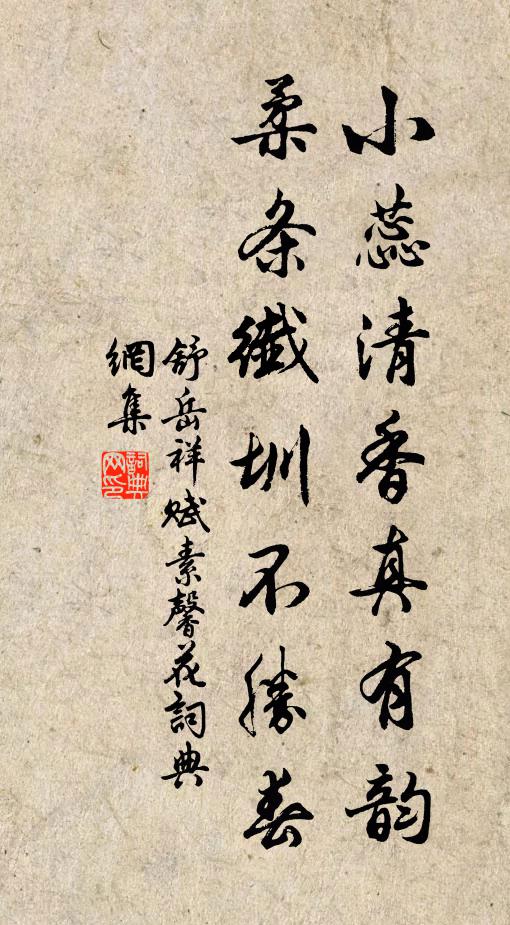 小蕊清香真有韵
柔条纖圳不勝春
舒岳祥赋素馨花詞典
網集
詞典
网印